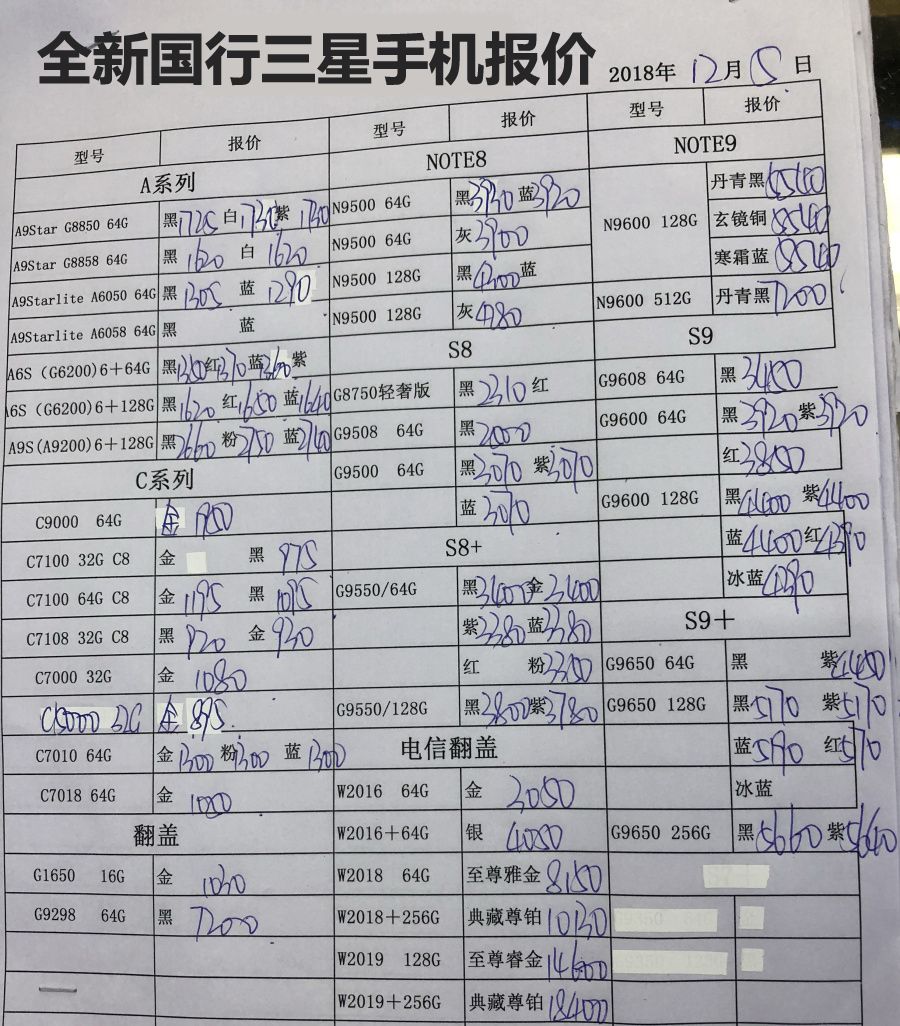 全新国行三星手机报价
2018年 12月 5 日
型号 报价
A系列
A9Star G8850 64G 黑1725 白1730 紫1730
A9Star G8858 64G 黑 1620 白 1620
A9Starlite A6050 64G 黑 1305 蓝 1290
A9Starlite A6058 64G 黑 蓝
A6S (G6200)6+64G 黑1350 红1370 蓝1360 紫
A6S (G6200)6+128G 黑1620 红1650 蓝1640
A9S(A9200)6+128G 黑2660 粉2750 蓝2740
C系列
C9000 64G 金
C7100 32G C8 金 黑 975
C7100 64G C8 金 1195 黑 1095
C7108 32G C8 黑 920 金 930
C7000 32G 金 1080
C5000 32G 金 895
C7010 64G 金1300 粉1300 蓝1300
C7018 64G 金
翻盖
G1650 16G 金 1030
G9298 64G 黑 7200
型号 报价
NOTE8
N9500 64G 黑3930 蓝3920
N9500 64G 灰3900
N9500 128G 黑4300 蓝
N9500 128G 灰4280
S8
G8750轻奢版 黑2310 红
G9508 64G 黑
G9500 64G 黑3070 紫3070
蓝3070
S8+
G9550/64G 黑3400 金3400
紫3380 蓝3380
红 粉3350
G9550/128G 黑3800 紫3780
电信翻盖
W2016 64G 金 3050
W2016+64G 银 4050
W2018 64G 至尊雅金 8150
W2018+256G 典藏尊铂 10130
W2019 128G 至尊睿金 14600
W2019+256G 典藏尊铂 18400
型号 报价
NOTE9
N9600 128G 丹青黑 5540
玄镜铜 5540
寒霜蓝 5540
N9600 512G 丹青黑 7200
S9
G9608 64G 黑 3450
G9600 64G 黑3920 紫3920
红3850
G9600 128G 黑4400 紫4400
蓝4400 红4390
冰蓝4390
S9+
G9650 64G 黑 紫4450
G9650 128G 黑5170 紫5170
蓝 红5170
冰蓝
G9650 256G 黑5660 紫5640